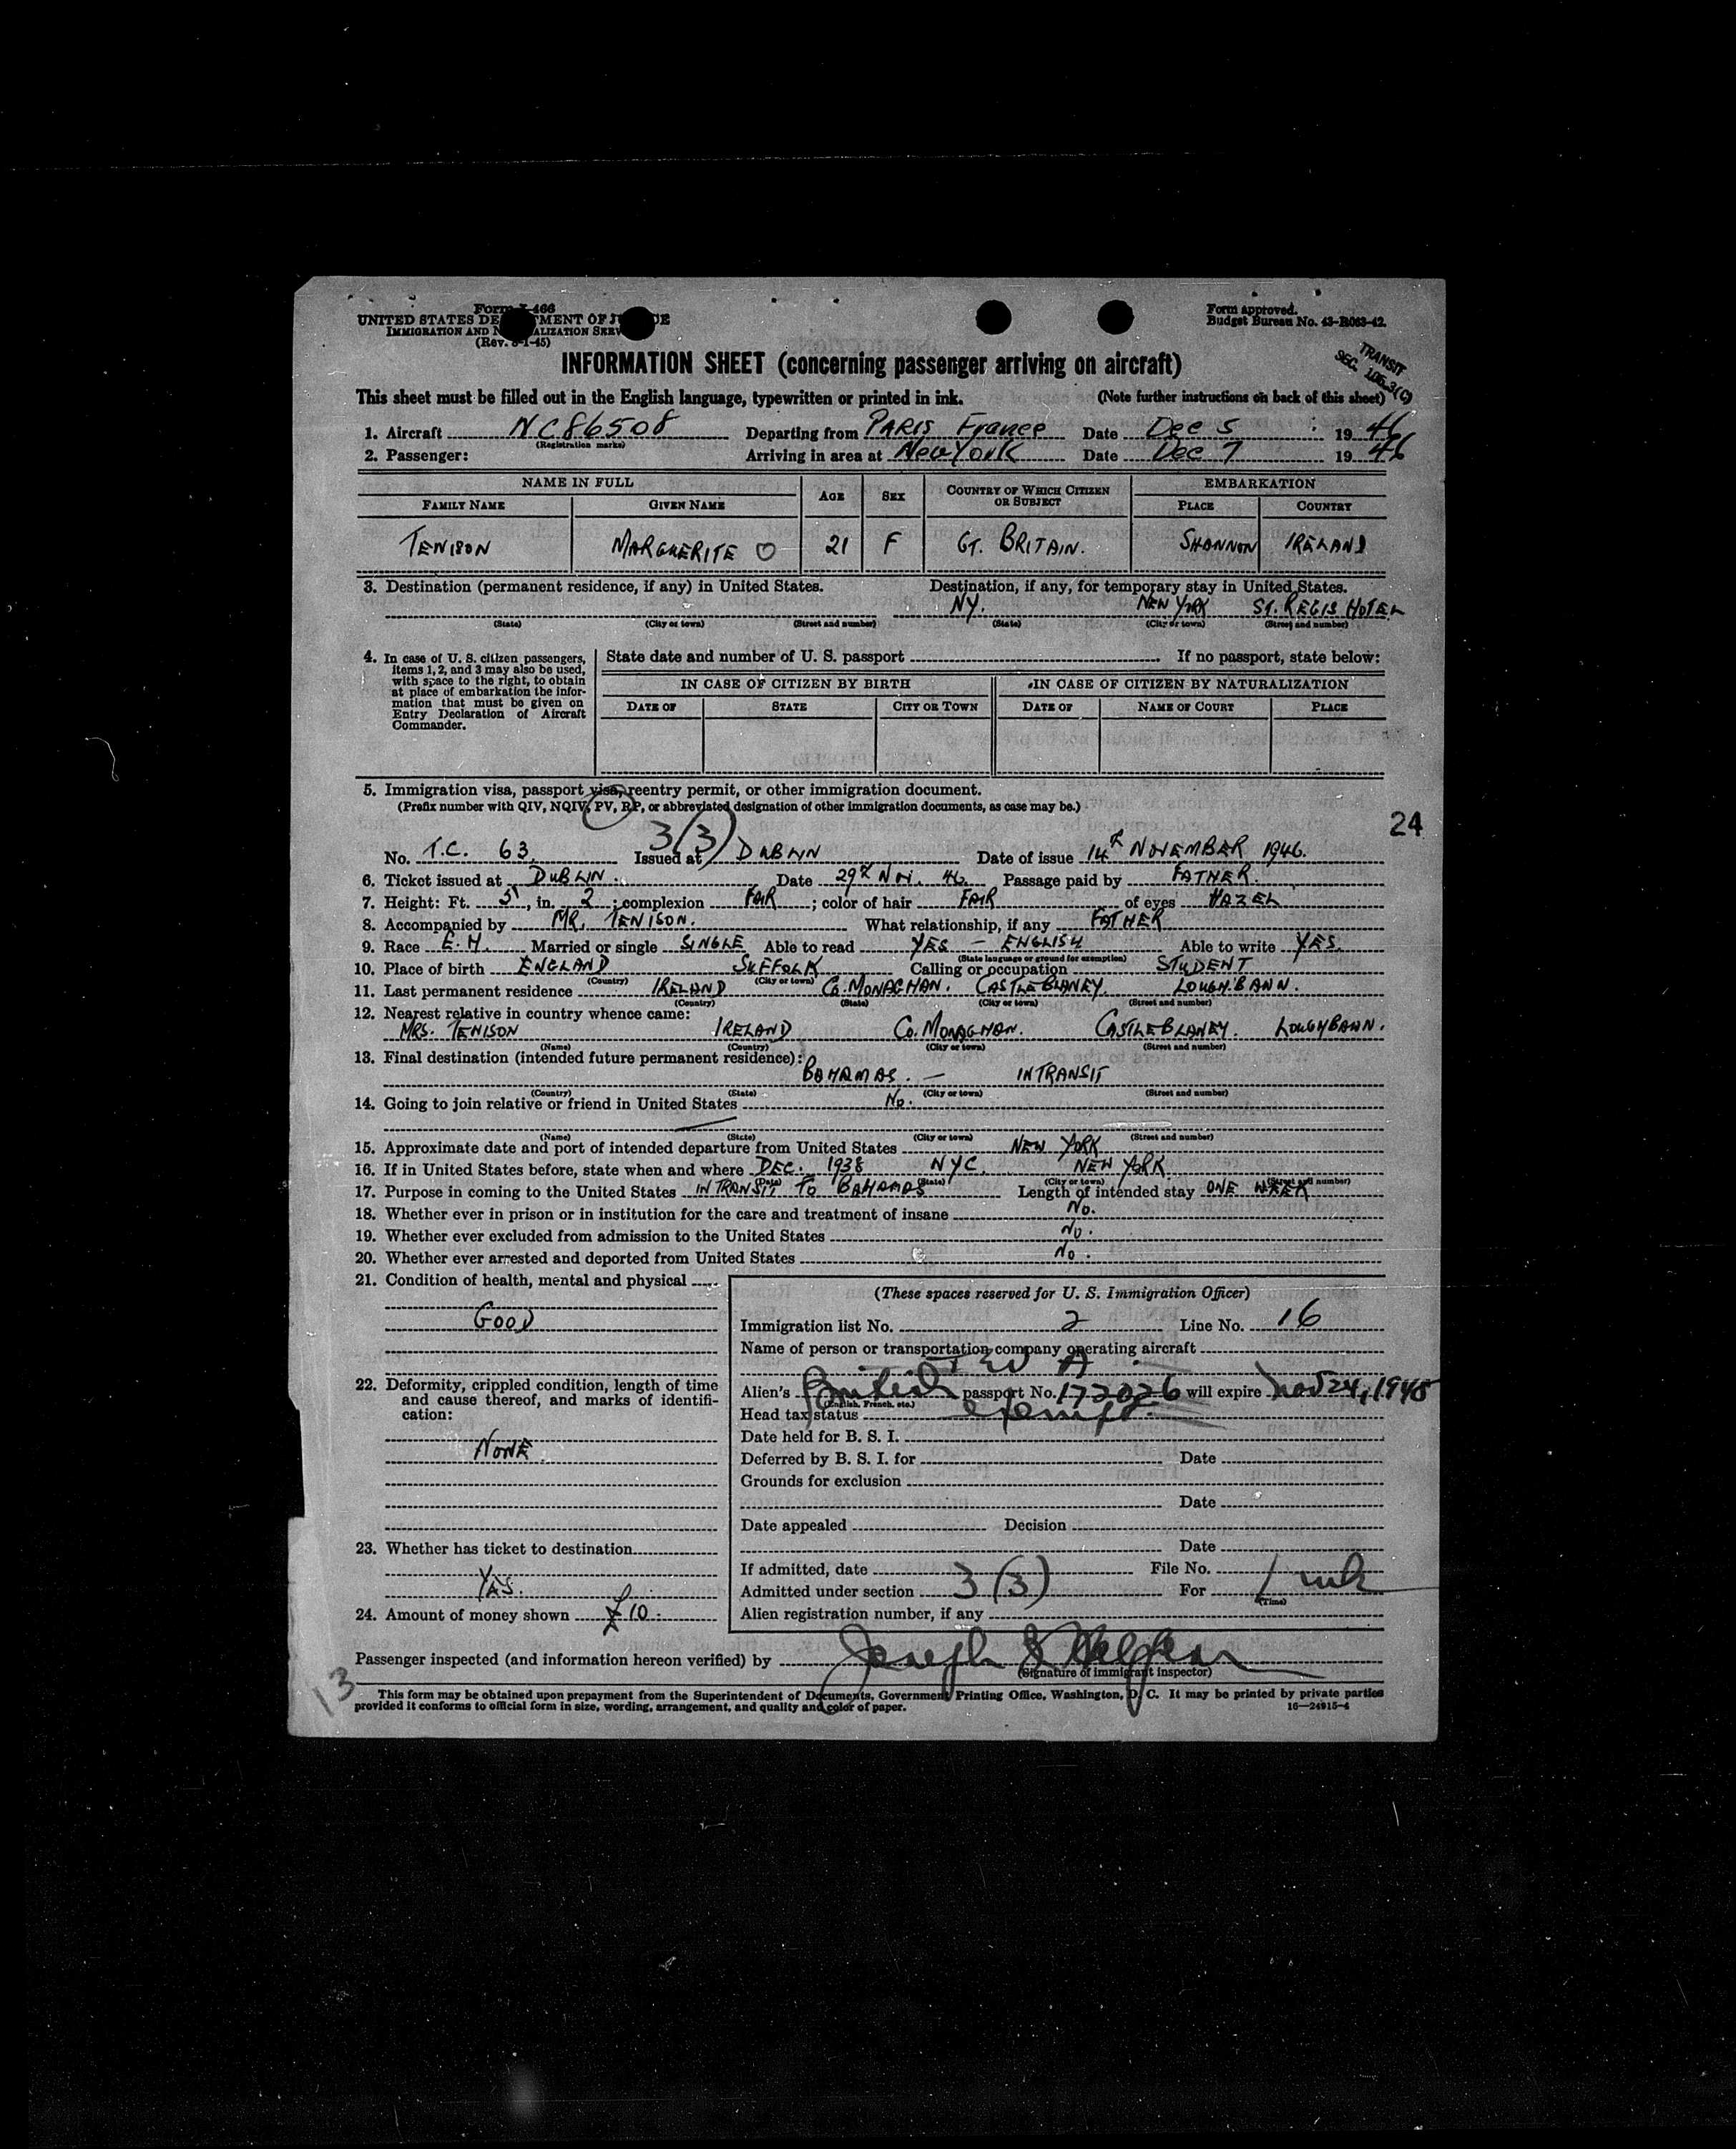 Form I-466
UNITED STATES DE TMENT OF J E
IMMIGRATION AND N ALIZATION SERV
(Rev. 8-1-45)
Form approved.
Budget Bureau No. 43-R063-42.
TRANSIT
SEC. 106.3(c)
INFORMATION SHEET (concerning passenger arriving on aircraft)
This sheet must be filled out in the English language, typewritten or printed in ink. (Note further instructions on back of this sheet)
1. Aircraft NC86508 Departing from PARIS France Date Dec 5 1946
(Registration marks)
2. Passenger: Arriving in area at New York Date Dec 7 1946
NAME IN FULL AGE SEX COUNTRY OF WHICH CITIZEN OR SUBJECT EMBARKATION
FAMILY NAME GIVEN NAME PLACE COUNTRY
TENISON MARGUERITE ♡ 21 F GT. BRITAIN. SHANNON IRELAND
3. Destination (permanent residence, if any) in United States. Destination, if any, for temporary stay in United States.
NY. NEW YORK ST. REGIS HOTEL
(State) (City or town) (Street and number) (State) (City or town) (Street and number)
4. In case of U. S. citizen passengers, items 1, 2, and 3 may also be used, with space to the right, to obtain at place of embarkation the information that must be given on Entry Declaration of Aircraft Commander.
State date and number of U. S. passport If no passport, state below:
IN CASE OF CITIZEN BY BIRTH IN CASE OF CITIZEN BY NATURALIZATION
DATE OF STATE CITY OR TOWN DATE OF NAME OF COURT PLACE
5. Immigration visa, passport visa, reentry permit, or other immigration document.
(Prefix number with QIV, NQIV, PV, RP, or abbreviated designation of other immigration documents, as case may be.)
24
3(3)
No. T.C. 63. Issued at DUBLIN Date of issue 14th NOVEMBER 1946.
6. Ticket issued at DUBLIN. Date 29th NOV. 46. Passage paid by FATHER.
7. Height: Ft. 5, in. 2; complexion FAIR; color of hair FAIR of eyes HAZEL
8. Accompanied by MR. TENISON. What relationship, if any FATHER
9. Race E.H. Married or single SINGLE Able to read YES - ENGLISH Able to write YES.
(State language or ground for exemption)
10. Place of birth ENGLAND SUFFOLK Calling or occupation STUDENT
(Country) (City or town)
11. Last permanent residence IRELAND CO. MONAGHAN. CASTLEBLANEY. LOUGHBAWN.
(Country) (State) (City or town) (Street and number)
12. Nearest relative in country whence came:
MRS. TENISON IRELAND CO. MONAGHAN. CASTLEBLANEY. LOUGHBAWN.
(Name) (Country) (City or town) (Street and number)
13. Final destination (intended future permanent residence):
BAHAMAS. — INTRANSIT
(Country) (State) (City or town) (Street and number)
14. Going to join relative or friend in United States No.
(Name) (State) (City or town) (Street and number)
15. Approximate date and port of intended departure from United States NEW YORK
16. If in United States before, state when and where DEC. 1938 NYC. NEW YORK
(Date) (State) (City or town) (Street and number)
17. Purpose in coming to the United States IN TRANSIT TO BAHAMAS Length of intended stay ONE WEEK
18. Whether ever in prison or in institution for the care and treatment of insane No.
19. Whether ever excluded from admission to the United States No.
20. Whether ever arrested and deported from United States No.
21. Condition of health, mental and physical
GOOD
22. Deformity, crippled condition, length of time and cause thereof, and marks of identification:
NONE.
23. Whether has ticket to destination
YES.
24. Amount of money shown £10.
(These spaces reserved for U. S. Immigration Officer)
Immigration list No. 2 Line No. 16
Name of person or transportation company operating aircraft
T W A
Alien's British passport No. 172026 will expire Nov 24, 1948
(English, French, etc.)
Head tax status exempt
Date held for B. S. I.
Deferred by B. S. I. for Date
Grounds for exclusion
Date
Date appealed Decision
Date
If admitted, date File No.
Admitted under section 3(3) For 1 wk
(Time)
Alien registration number, if any
Passenger inspected (and information hereon verified) by Joseph
(Signature of immigrant inspector)
13
This form may be obtained upon prepayment from the Superintendent of Documents, Government Printing Office, Washington, D. C. It may be printed by private parties
provided it conforms to official form in size, wording, arrangement, and quality and color of paper. 16—24915-4